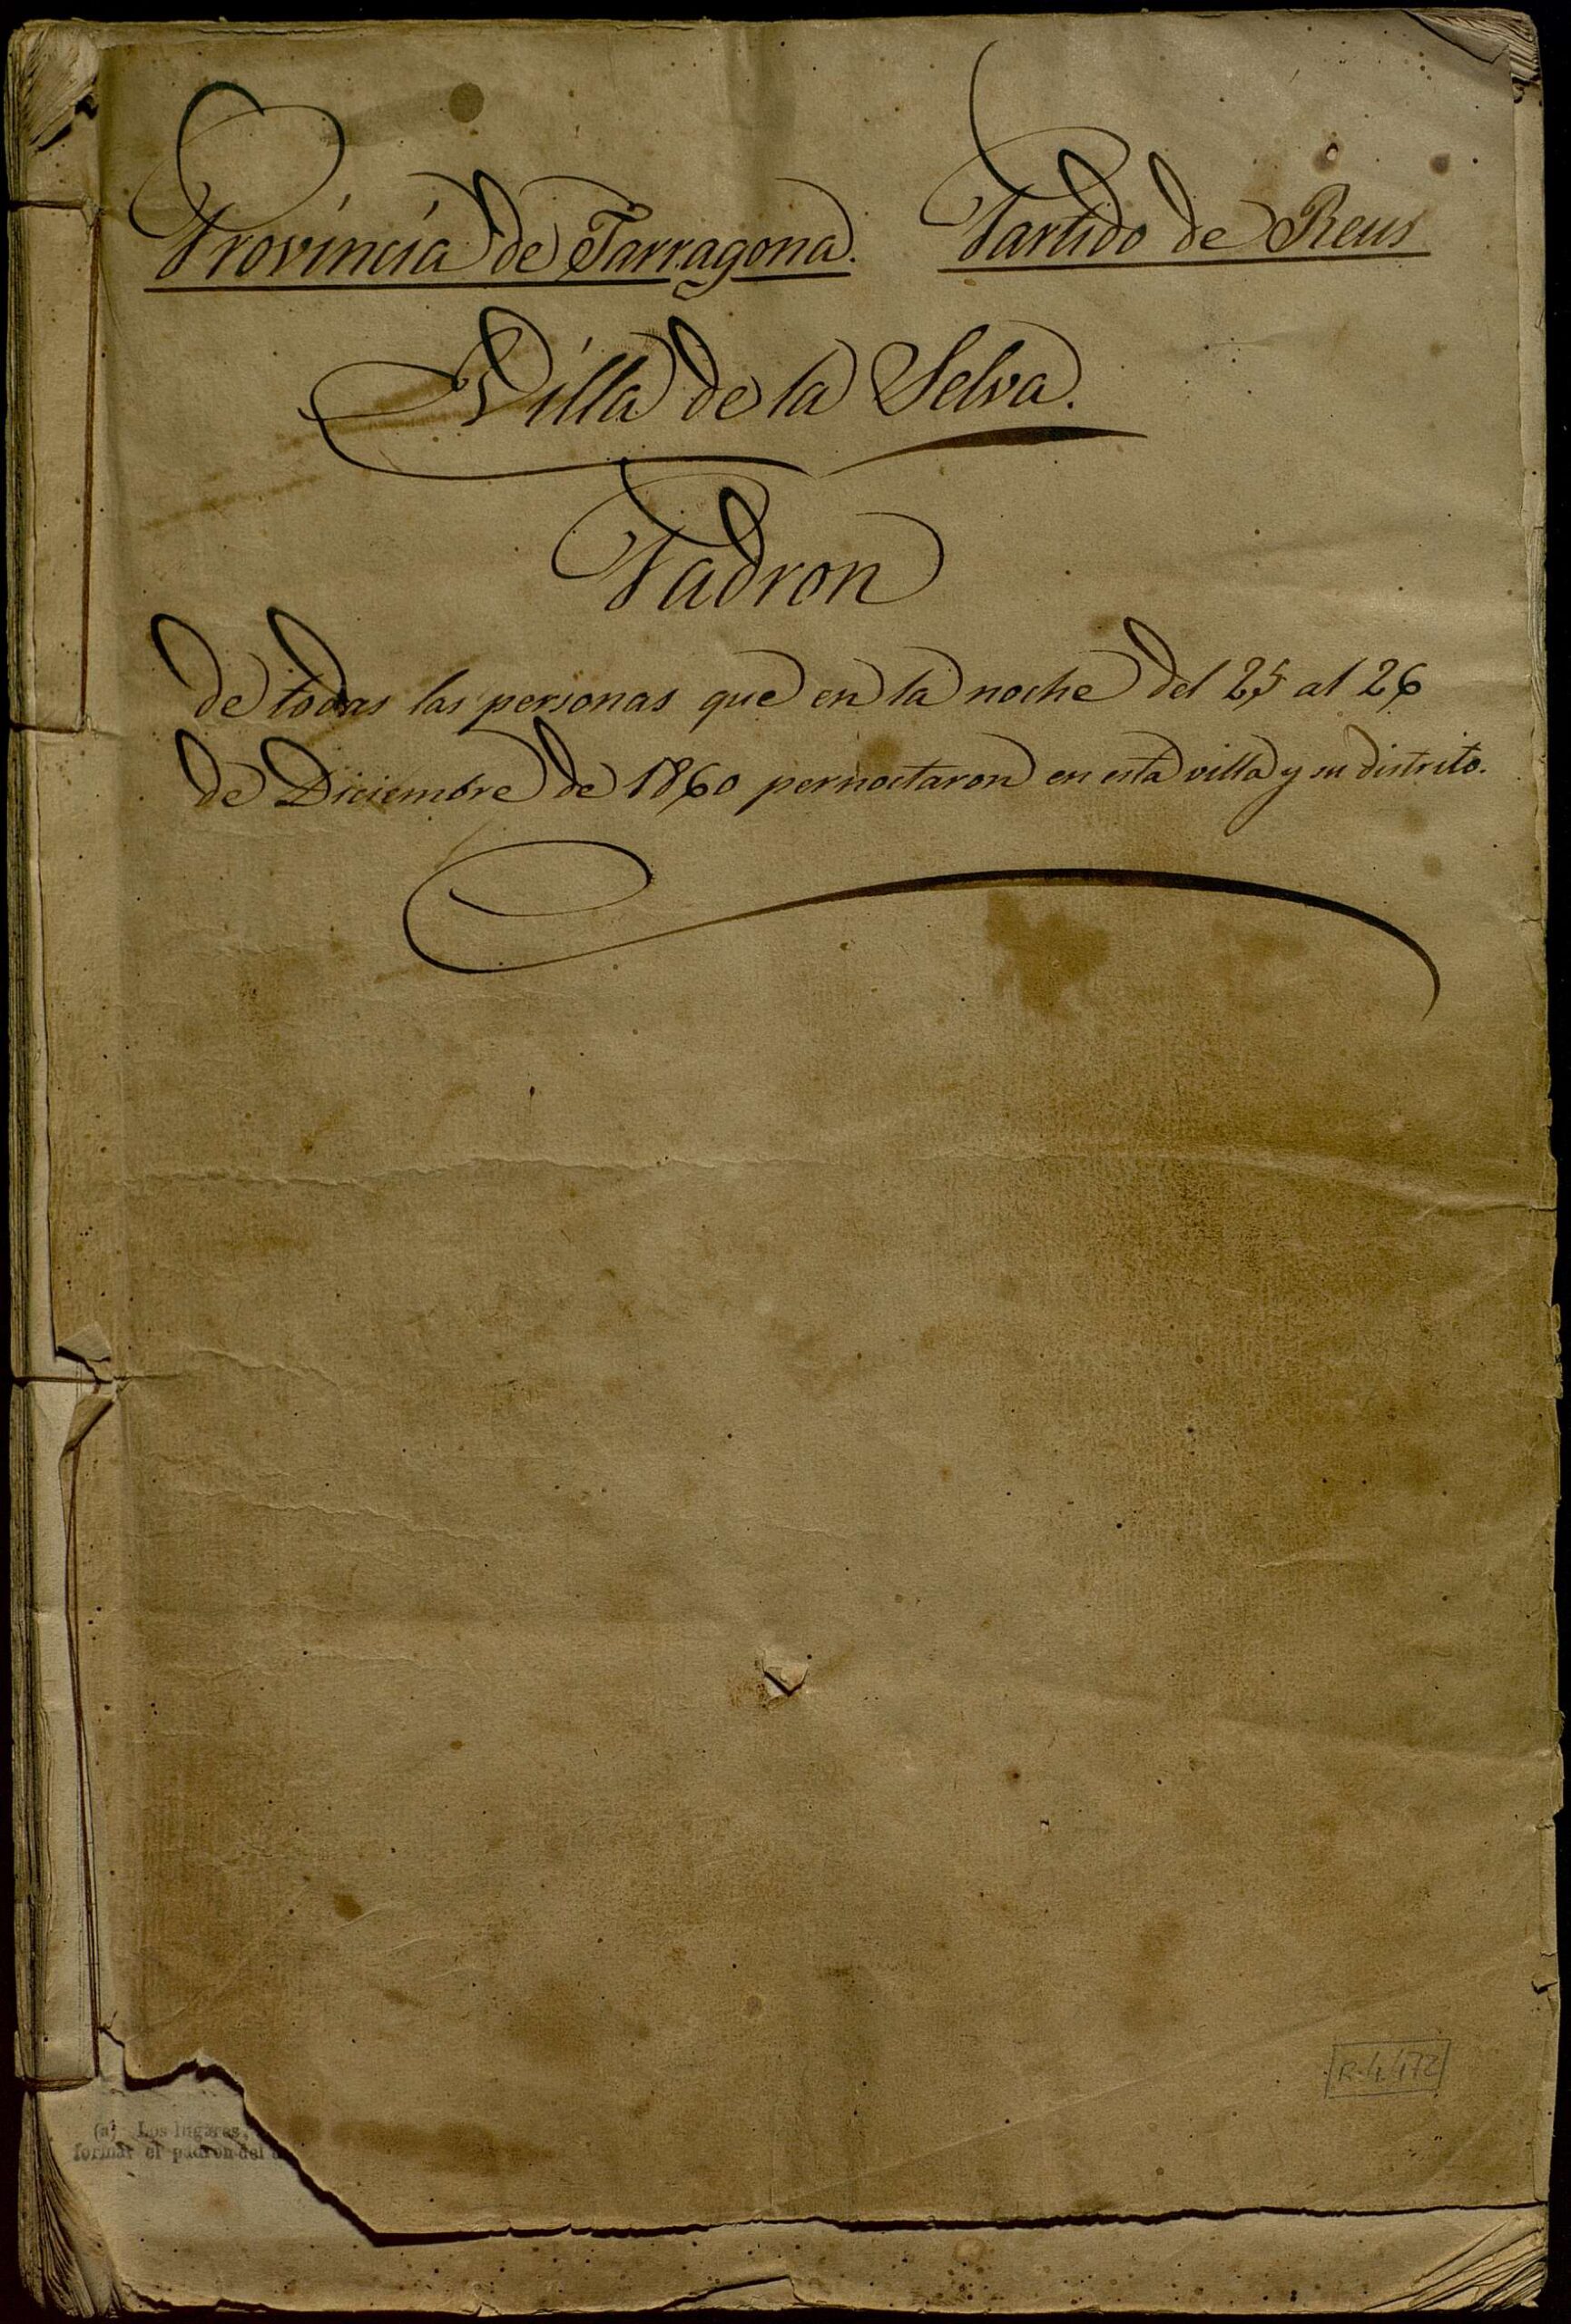 Provincia de Tarragona. Partido de Reus
Villa de la Selva.
Padron
de todas las personas que en la noche del 25 al 26
de Diciembre de 1860 pernoctaron en esta villa y su distrito.
R. 4.472
(a) Los lugares,
formar el padron del